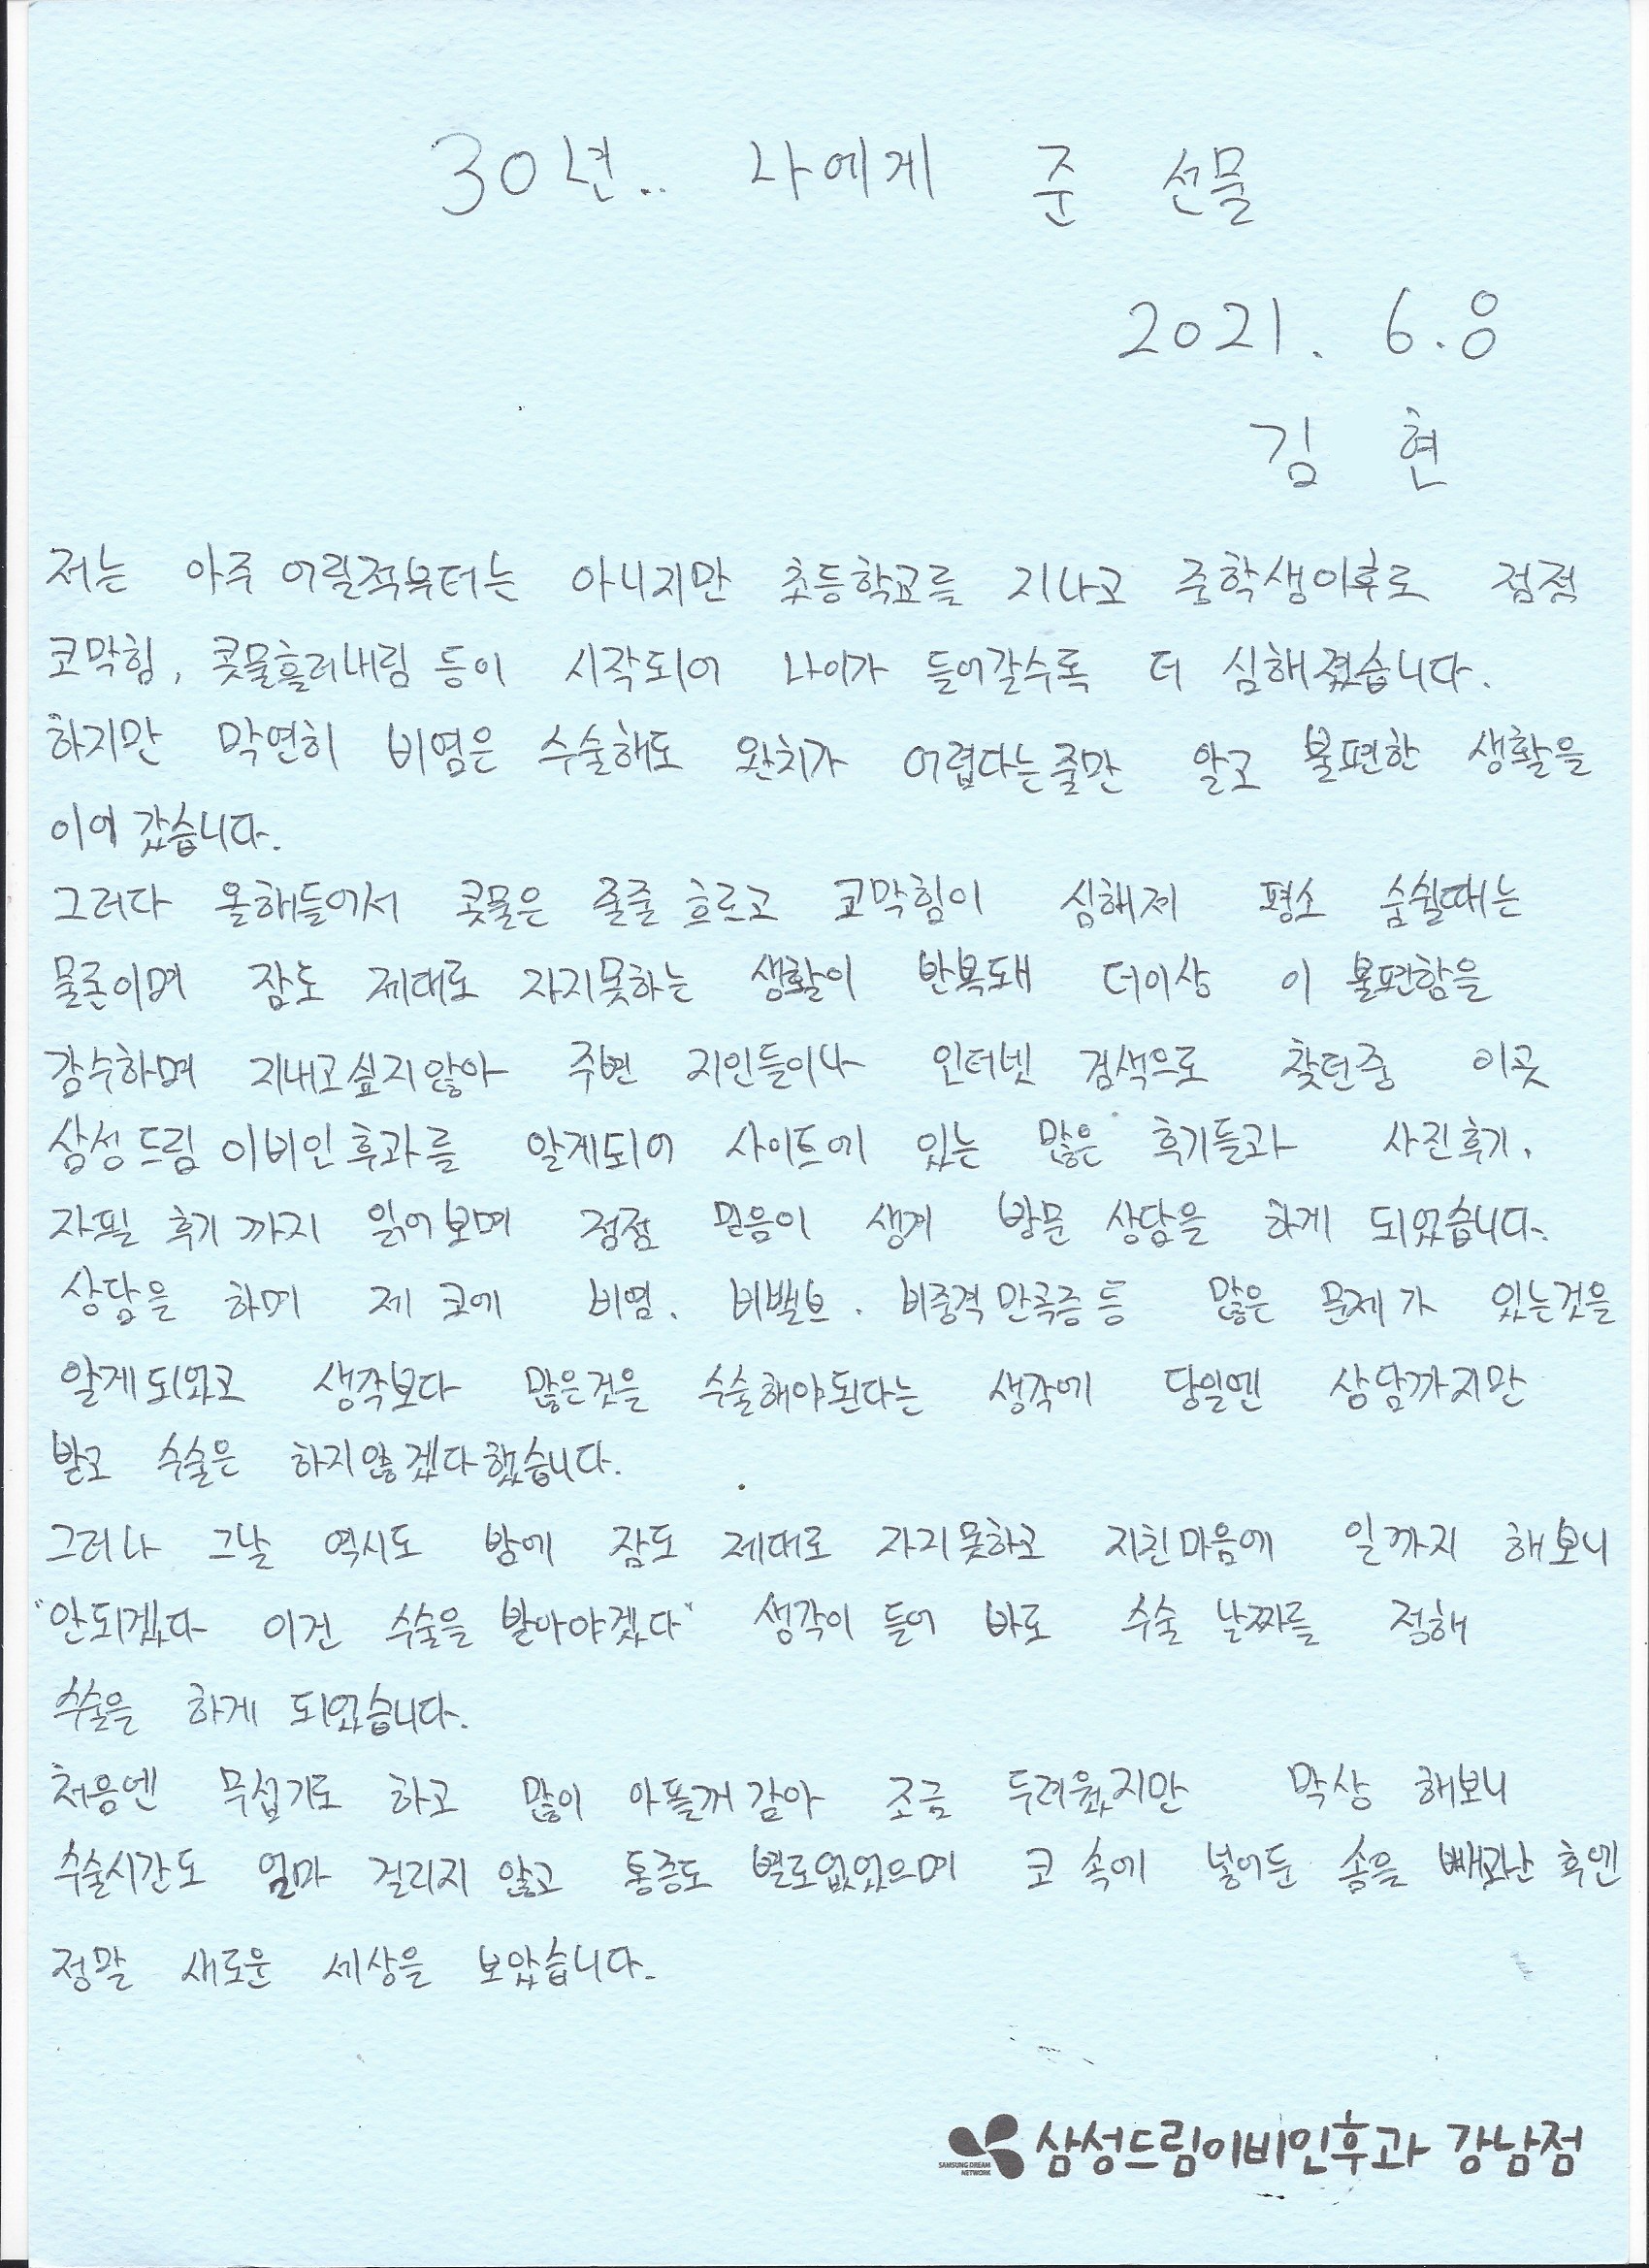 30년.. 나에게 준 선물
2021. 6.8
김 현
저는 아주 어릴적부터는 아니지만 초등학교를 지나고 중학생이후로 점점
코막힘, 콧물흘러내림 등이 시작되어 나이가 들어갈수록 더 심해졌습니다.
하지만 막연히 비염은 수술해도 완치가 어렵다는줄만 알고 불편한 생활을
이어 갔습니다.
그러다 올해들어서 콧물은 줄줄 흐르고 코막힘이 심해져 평소 숨쉴때는
물론이며 잠도 제대로 자지못하는 생활이 반복돼 더이상 이 불편함을
감수하며 지내고싶지않아 주변 지인들이나 인터넷 검색으로 찾던중 이곳
삼성드림이비인후과를 알게되어 사이트에 있는 많은 후기들과 사진후기,
자필 후기까지 읽어보며 점점 믿음이 생겨 방문 상담을 하게 되었습니다.
상담을 하며 제 코에 비염, 비밸브, 비중격만곡증등 많은 문제가 있는것을
알게되었고 생각보다 많은것을 수술해야된다는 생각에 당일엔 상담까지만
받고 수술은 하지않겠다했습니다.
그러나 그날 역시도 밤에 잠도 제대로 자지못하고 지친마음에 일까지 해보니
"안되겠다 이건 수술을 받아야겠다" 생각이 들어 바로 수술 날짜를 정해
수술을 하게 되었습니다.
처음엔 무섭기도 하고 많이 아플꺼같아 조금 두려웠지만 막상 해보니
수술시간도 얼마 걸리지 않고 통증도 별로없었으며 코 속에 넣어둔 솜을 빼고난 후엔
정말 새로운 세상을 보았습니다.
SAMSUNG DREAM NETWORK 삼성드림이비인후과 강남점